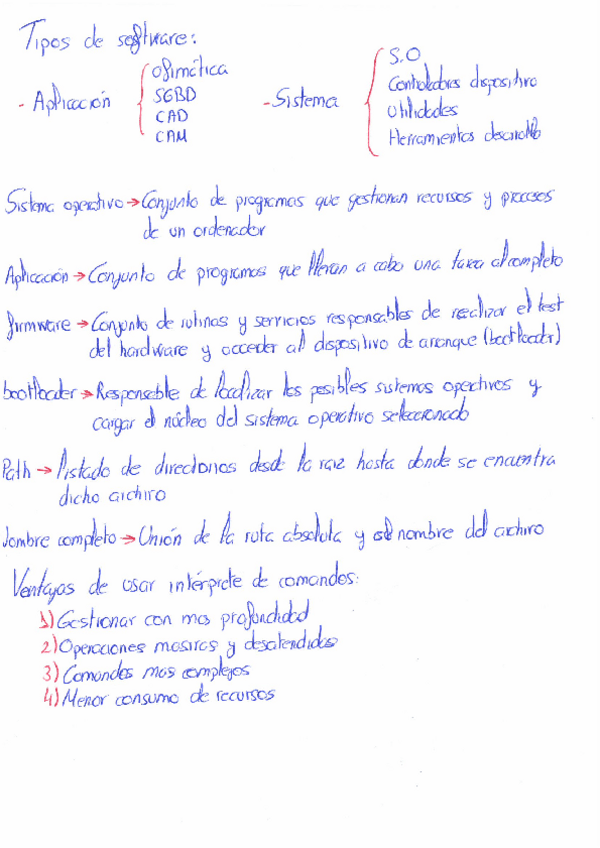 Tipos de software:
- Aplicación
ofimática
SGBD
CAD
CAM
- Sistema
S.O
Controladores dispositivo
Utilidades
Herramientas desarrollo
Sistema operativo → Conjunto de programas que gestionan recursos y procesos
de un ordenador
Aplicación → Conjunto de programas que llevan a cabo una tarea al completo
firmware → Conjunto de rutinas y servicios responsables de realizar el test
del hardware y acceder al dispositivo de arranque (bootloader)
bootloader → Responsable de localizar los posibles sistemas operativos y
cargar el núcleo del sistema operativo seleccionado
Path → listado de directorios desde la raiz hasta donde se encuentra
dicho archivo
Nombre completo → Unión de la ruta absoluta y el nombre del archivo
Ventajas de usar intérprete de comandos:
1) Gestionar con mas profundidad
2) Operaciones masivas y desatendidas
3) Comandos mas complejos
4) Menor consumo de recursos